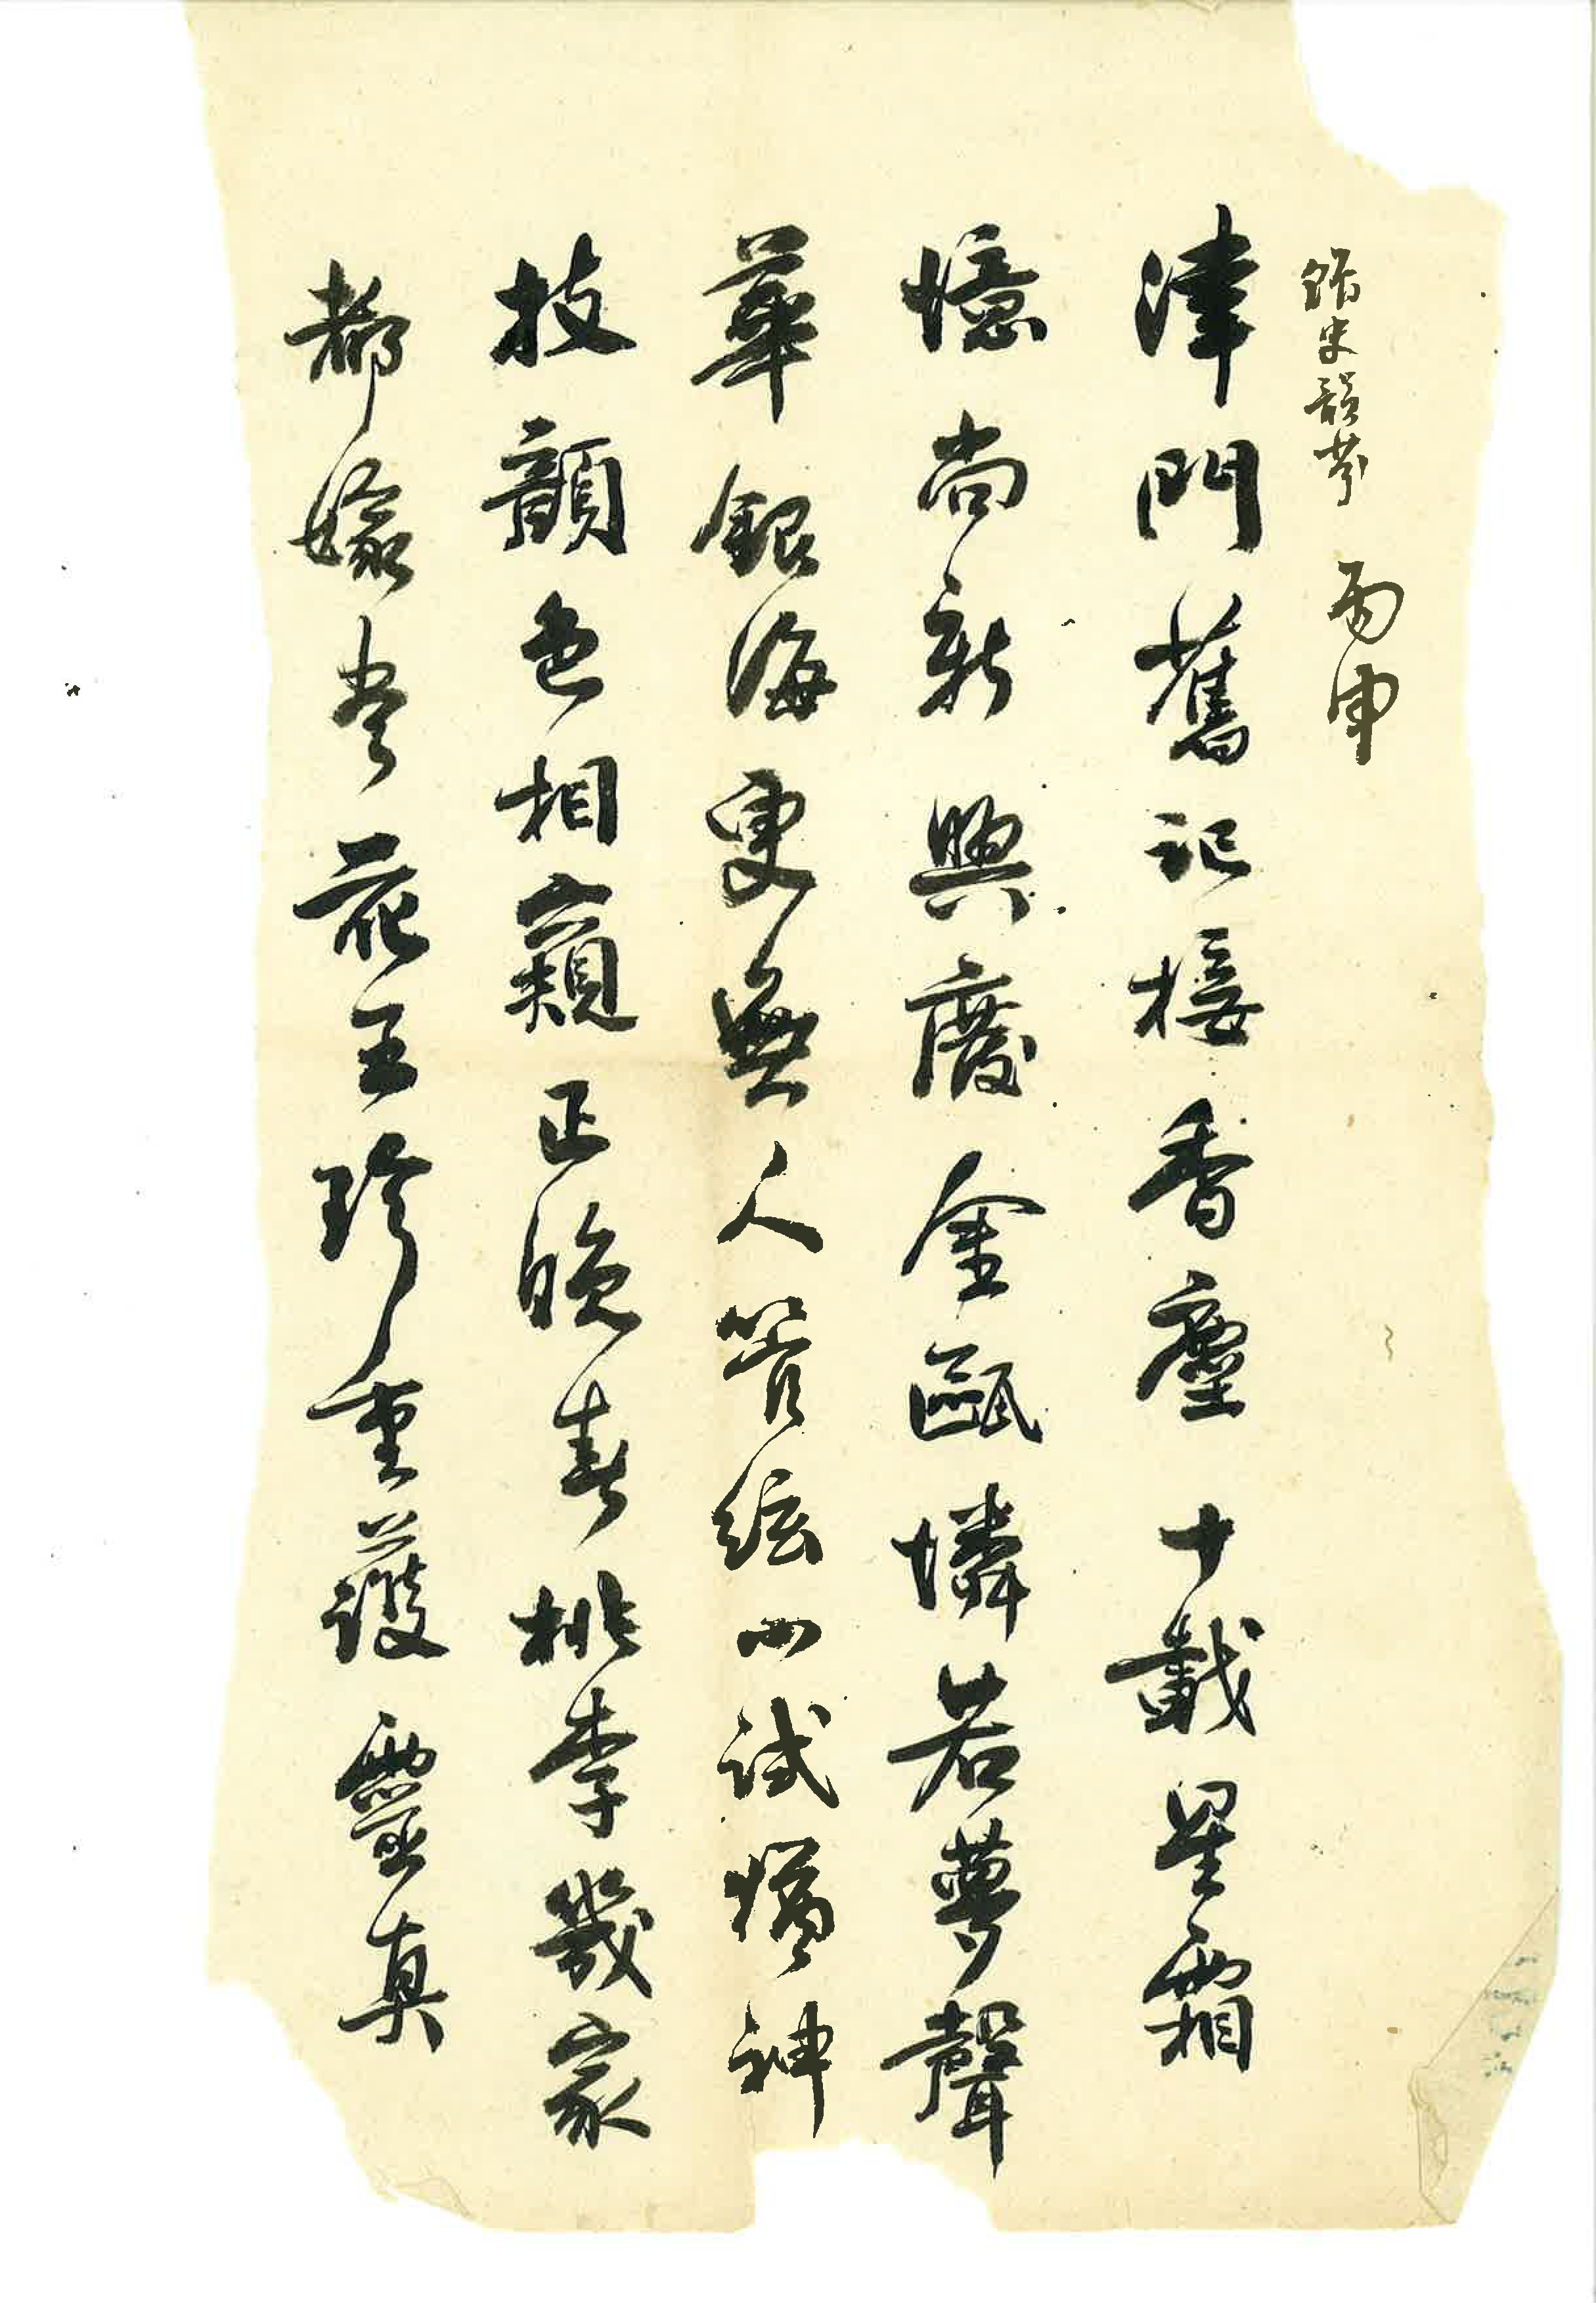 史韻芬 丙申
津門舊記接香塵十載星霜
憶尚新興廢金甌憐若夢聲
華銀海更無人管絃小試猶神
技顏色相窺正晚春桃李幾家
都嫁盡花王珍重護靈真